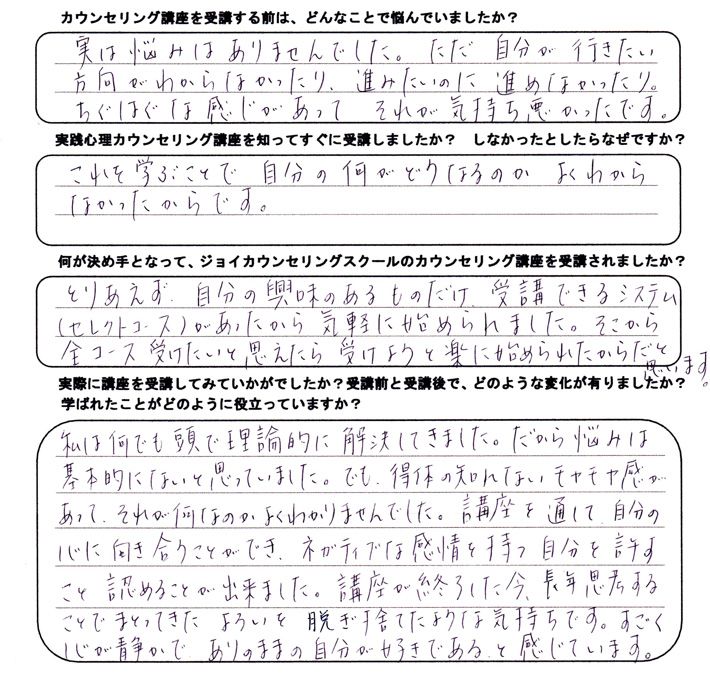 カウンセリング講座を受講する前は、どんなことで悩んでいましたか？
実は悩みはありませんでした。ただ 自分が 行きたい
方向がわからなかったり、進みたいのに 進めなかったり。
ちぐはぐな感じがあって それが気持ち悪かったです。
実践心理カウンセリング講座を知ってすぐに受講しましたか？ しなかったとしたらなぜですか？
これを学ぶことで 自分の何がどうなるのか よくわから
なかったからです。
何が決め手となって、ジョイカウンセリングスクールのカウンセリング講座を受講されましたか？
とりあえず、自分の興味のあるものだけ、受講できるシステム
(セレクトコース)があったから 気軽に始められました。そこから
全コース受けたいと思えたら 受けようと楽に始められたからだと
思います。
実際に講座を受講してみていかがでしたか？受講前と受講後で、どのような変化が有りましたか？
学ばれたことがどのように役立っていますか？
私は何でも頭で理論的に解決してきました。だから悩みは
基本的にないと思っていました。でも、得体の知れないモヤモヤ感が
あって、それが何なのかよくわかりませんでした。講座を通して、自分の
心に向き合うことができ、ネガティブな感情を持つ自分を許す
こと 認めることが出来ました。講座が終了した今、長年思考する
ことでまとってきた よろいを 脱ぎ捨てたような気持ちです。すごく
心が静かで ありのままの自分が好きである、と感じています。